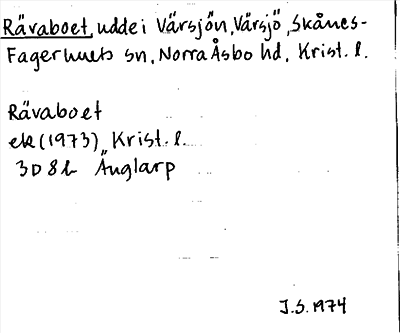 Rävaboet, udde i Värsjön, Värsjö, Skånes-
Fagerhults sn, Norra Åsbo hd, Krist. l.
Rävaboet
ek (1973), Krist. l.
3D 8h Änglarp
J.S. 1974